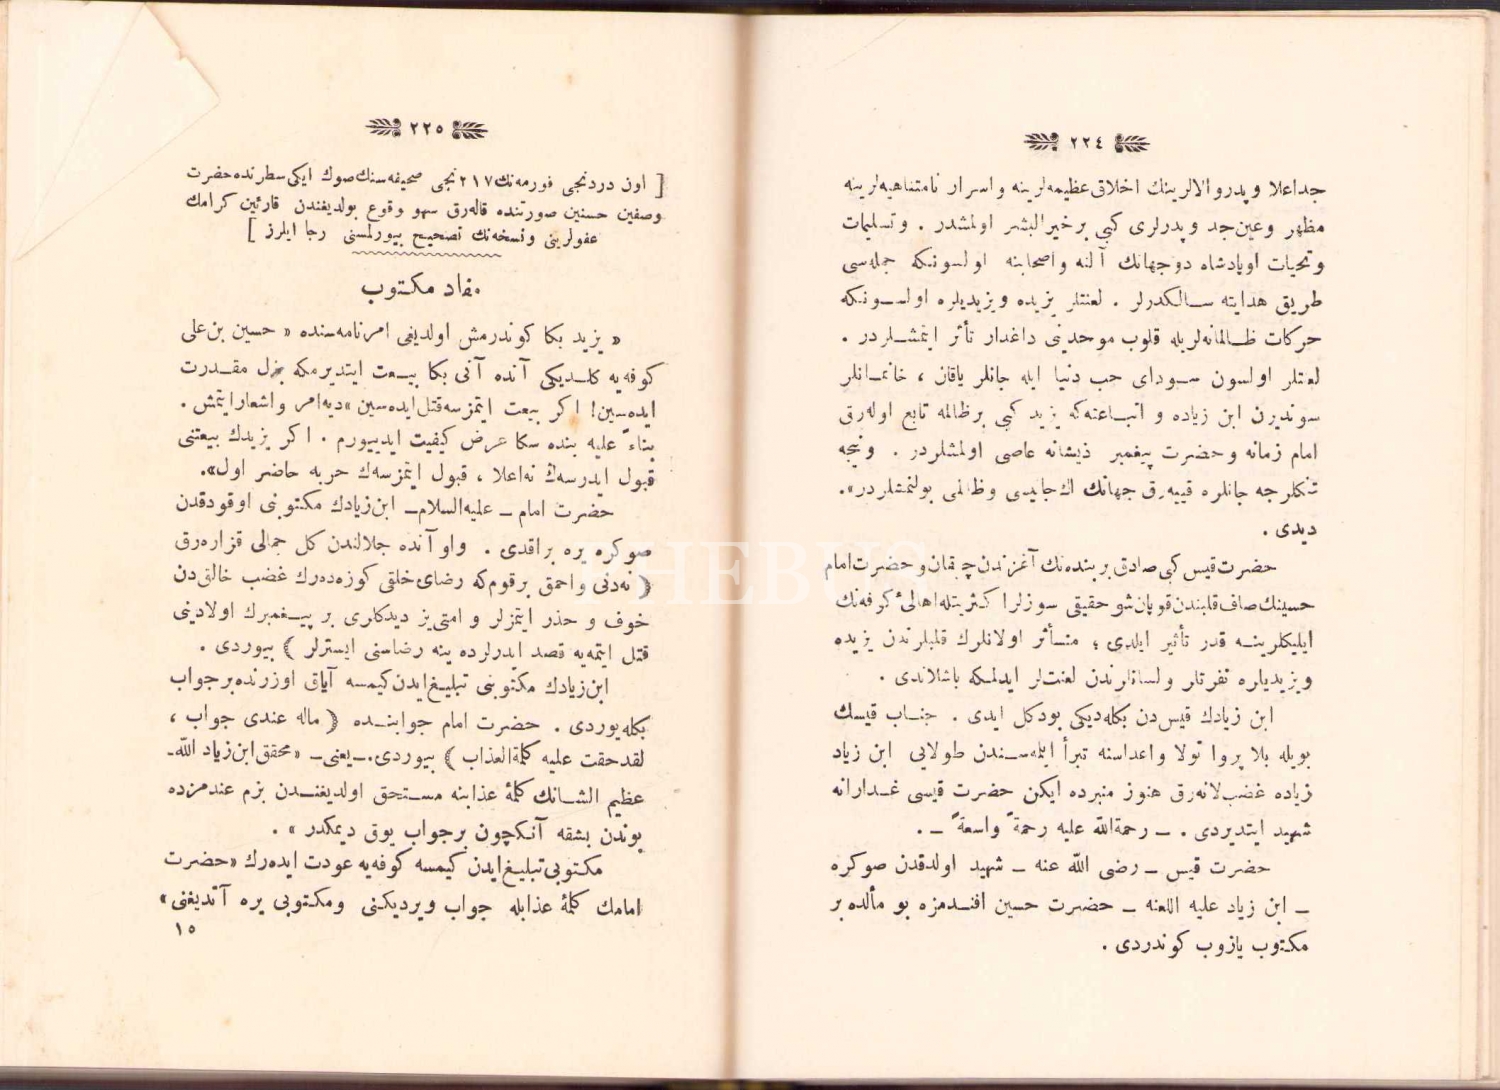 ٢٢٤
جداعلا و پدر والالرينك اخلاق عظيمه لرينه و اسرار نامتناهيه لرينه
مظهر و عين جد و پدرلرى كبى بر خيرالبشر اولمشدر . و تسليمات
و تحيات او پادشاه دو جهانك آلنه و اصحابنه اولسونكه جمله سى
طريق هدايته سالكدرلر . لعنتلر يزيده و يزيديلره اولسونكه
حركات ظالمانه لريله قلوب موحدينى داغدار تأثر ايتمشلردر .
لعنتلر اولسون سوداى حب دنيا ايله جانلر ياقان ، خانمانلر
سوندرن ابن زياده و اتباعنه كه يزيد كبى بر ظالمه تابع اوله رق
امام زمانه و حضرت پيغمبر ذيشانه عاصى اولمشلردر . و نيجه
جانلره قييه رق جهانك اك جانيسى و ظالمى بولنمشلردر».
ديدى .
حضرت قيس كبى صادق بر بنده نك آغزندن چيقان و حضرت امام
حسينك صاف قلبندن قوپان شو حقيقى سوزلر اكثريتله اهالئ كوفه نك
ايليكلرينه قدر تأثير ايلدى ؛ متأثر اولانلرك قلبلرندن يزيده
و يزيديلره نفرتلر و لسانلرندن لعنتلر ايدلمكه باشلاندى .
ابن زيادك قيس دن بكله ديكى بو دكل ايدى . جناب قيسك
بويله بلا پروا تولا و اعداسنه تبرأ ايله سندن طولايى ابن زياد
زياده غضبلانه رق هنوز منبرده ايكن حضرت قيسى غدارانه
شهيد ايتديردى . ــ رحمة الله عليه رحمةً واسعةً ــ .
حضرت قيس ــ رضى الله عنه ــ شهيد اولدقدن صوكره
ــ ابن زياد عليه اللعنه ــ حضرت حسين افندمزه بو مألده بر
مكتوب يازوب كوندردى .
٢٢٥
[ اون دردنجى فورمه نك ٢١٧ نجى صحيفه سنك صوك ايكى سطرنده حضرت
وصفين حسنين صورتنده قاله رق سهو وقوع بولديغندن قارئين كرامك
عفولرينى و نسخه نك تصحيح بيورلمسنى رجا ايلرز ]
مفاد مكتوب
« يزيد بكا كوندرمش اولديغى امرنامه سنده « حسين بن على
كوفه يه كلديكى آنده آنى بكا بيعت ايتديرمكه بذل مقدرت
ايده سين! اكر بيعت ايتمزسه قتل ايده سين» ديه امر و اشعار ايتمش .
بناءً عليه بنده سكا عرض كيفيت ايدييورم . اكر يزيدك بيعتنى
قبول ايدرسه ك نه اعلا ، قبول ايتمزسه ك حربه حاضر اول».
حضرت امام ــ عليه السلام ــ ابن زيادك مكتوبنى اوقودقدن
صوكره يره براقدى . و او آنده جلالندن كل جمالى قزاره رق
( نه دنى و احمق بر قوم كه رضاى خلقى كوزه ده رك غضب خالق دن
خوف و حذر ايتمزلر و امتى يز ديدكلرى بر پيغمبرك اولادينى
قتل ايتمه يه قصد ايدرلرده ينه رضاسنى ايسترلر ) بيوردى .
ابن زيادك مكتوبنى تبليغ ايدن كيمسه آياق اوزرنده بر جواب
بكله يوردى . حضرت امام جوابنده ( ماله عندى جواب ،
لقد حقت عليه كلمة العذاب ) بيوردى . ــ يعنى ــ « محقق ابن زياد الله
عظيم الشانك كلمۀ عذابنه مستحق اولديغندن بزم عندمزده
بوندن بشقه آنكچون بر جواب يوق ديمكدر » .
مكتوبى تبليغ ايدن كيمسه كوفه يه عودت ايده رك «حضرت
امامك كلمۀ عذابله جواب ويرديكنى و مكتوبى يره آتديغنى»
١٥
PHEBUS